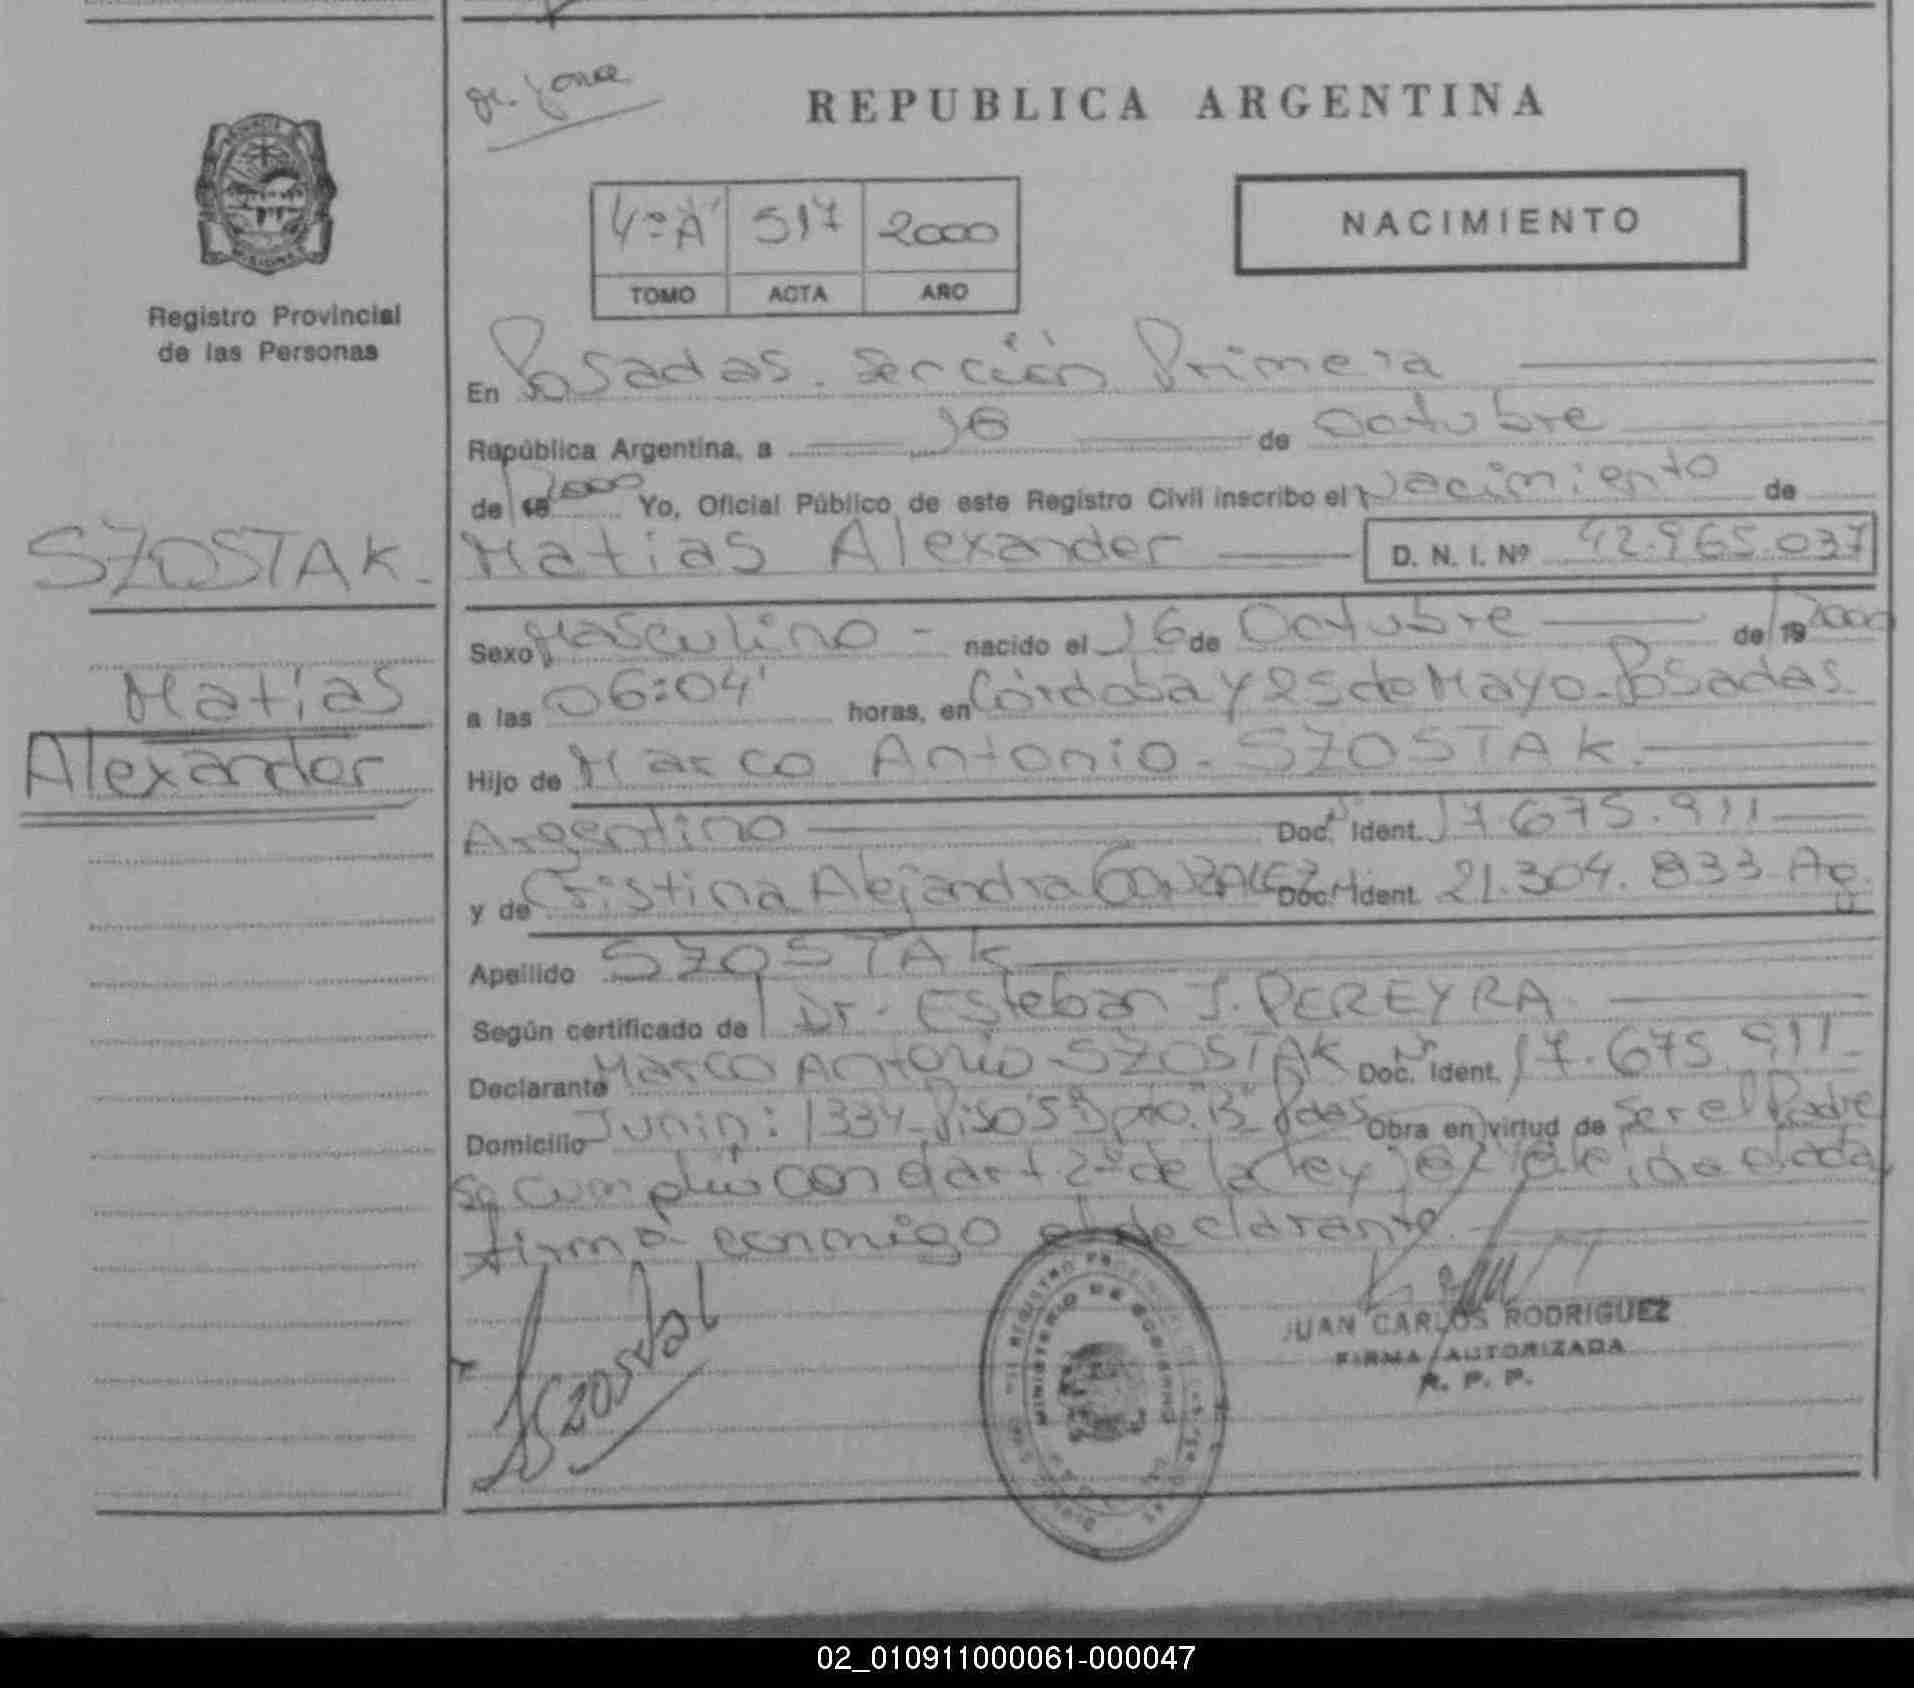 REPUBLICA ARGENTINA
NACIMIENTO
4º "A" 517 2000
TOMO ACTA AÑO
MISIONES
Registro Provincial
de las Personas
En Posadas. Sección Primera
República Argentina, a 16 de Octubre
de 19 2000 Yo, Oficial Público de este Registro Civil inscribo el Nacimiento de
SZOSTAK.
Matias Alexander D. N. I. Nº 42.965.037
Sexo Masculino - nacido el 16 de Octubre de 19 2000
Matías
Alexander
a las 06:04' horas, en Córdoba y 25 de Mayo - Posadas.
Hijo de Marco Antonio - SZOSTAK.
Argentino Doc. Ident. 17.675.911
y de Cristina Alejandra GONZALEZ Doc. Ident. 21.304.833 Ag
Apellido SZOSTAK
Según certificado de Dr. Esteban J. PEREYRA
Declarante Marco Antonio SZOSTAK Doc. Ident. 17.675.911
Domicilio Junin: 1334 - Piso 5 Dpto. "B" Pdas Obra en virtud de ser el Padre
Se cumplió con el art 2º de la ley leida
firma conmigo el declarante.
Szostak
REGISTRO PROVINCIAL DE LAS PERSONAS
MINISTERIO DE GOBIERNO
JUAN CARLOS RODRIGUEZ
FIRMA AUTORIZADA
R. P. P.
02_010911000061-000047